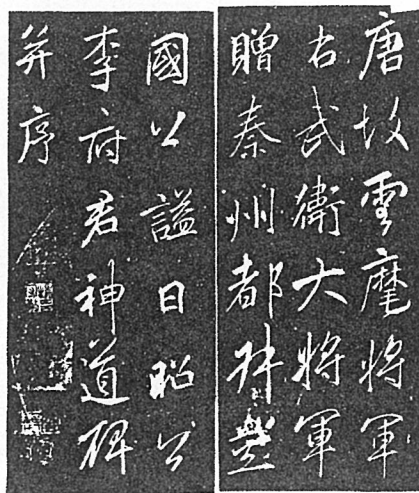 唐故雲麾將軍
右武衛大將軍
贈秦州都督彭
國公謚曰昭公
李府君神道碑
并序